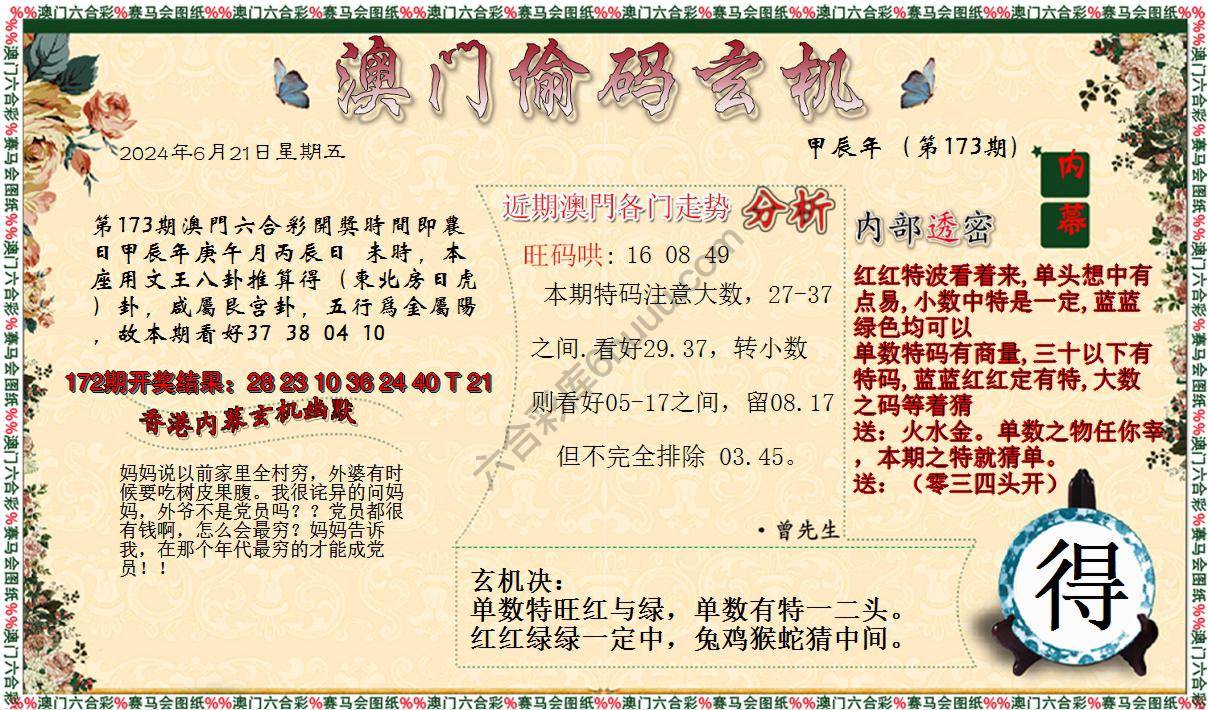 %%澳门六合彩%赛马会图纸%%澳门六合彩%赛马会图纸%%澳门六合彩%赛马会图纸%%澳门六合彩%赛马会图纸%%澳门六合彩%赛马会图纸%%澳门六合彩%赛马会图纸%%
澳门偷码玄机
2024年6月21日星期五
甲辰年（第173期）
内
幕
第173期澳門六合彩開獎時間即農
日甲辰年庚午月丙辰日 未時，本
座用文王八卦推算得（東北房日虎
）卦，咸屬艮宫卦，五行爲金屬陽
，故本期看好37 38 04 10
172期开奖结果：28 23 10 36 24 40 T 21
香港内幕玄机幽默
妈妈说以前家里全村穷，外婆有时
候要吃树皮果腹。我很诧异的问妈
妈，外爷不是党员吗？？党员都很
有钱啊，怎么会最穷？妈妈告诉
我，在那个年代最穷的才能成党
员！！
近期澳門各门走势 分析
旺码哄: 16 08 49
本期特码注意大数，27-37
之间.看好29.37，转小数
则看好05-17之间，留08.17
但不完全排除 03.45。
·曾先生
内部透密
红红特波看着来,单头想中有
点易,小数中特是一定,蓝蓝
绿色均可以
单数特码有商量,三十以下有
特码,蓝蓝红红定有特,大数
之码等着猜
送：火水金。单数之物任你宰
，本期之特就猜单。
送：（零三四头开）
玄机决：
单数特旺红与绿，单数有特一二头。
红红绿绿一定中，兔鸡猴蛇猜中间。
得
六合彩库6huuu.com